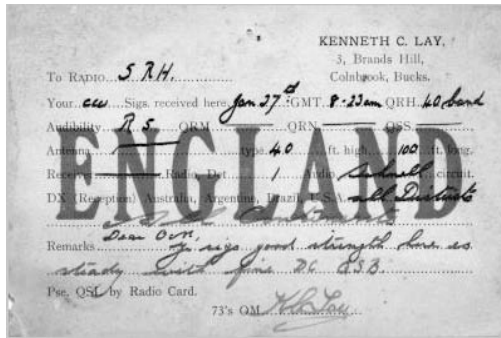 KENNETH C. LAY,
3, Brands Hill,
Colnbrook, Bucks.
To Radio 5 RH.
Your cw Sigs. received here Jan 27th GMT. 8-23am QRH. 40 band
Audibility R 5. QRM QRN QSS
Antenna type 40 ft. high. 100 ft. long.
Receiver Radio, Det 1 Audio circuit.
DX (Reception) Australia, Argentine, Brazil, U.S.A. all Districts
ENGLAND
Continents
Remarks Dear O.M, Yr sigs good strength here es
steady with fine DC QSB.
Pse. QSL by Radio Card.
73's OM. K C Lay